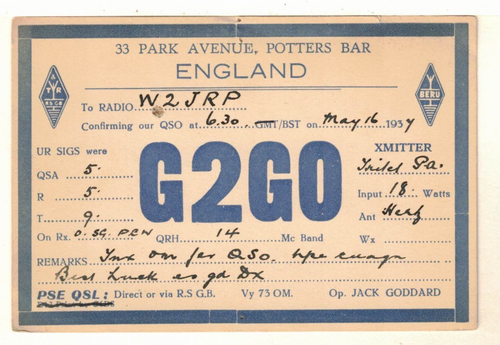 33 PARK AVENUE, POTTERS BAR
ENGLAND
R S G B
BERU
To RADIO W2JRP
Confirming our QSO at 6.30 GMT/BST on May 16 1937
UR SIGS were
XMITTER
QSA 5
G2GO
Tritet P.A.
R 5
Input 18 Watts
T 9
Ant Hertz
On Rx. O.SG.PEN QRH 14 Mc Band
Wx
REMARKS Tnx om fer QSO. hpe cuagn
Best luck es gd Dx
PSE QSL: Direct or via R.S.G.B. Vy 73 OM. Op. JACK GODDARD